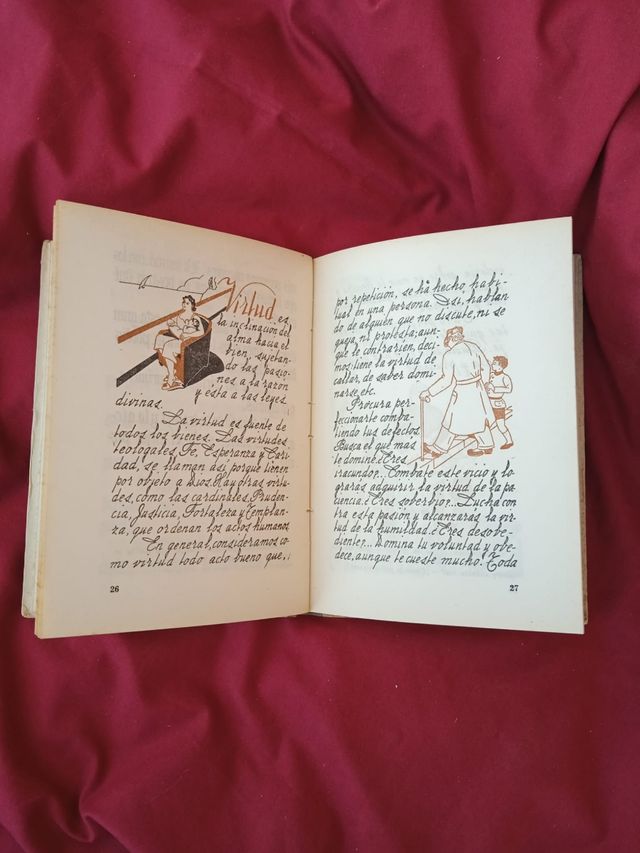 Virtud es
la inclinación del
alma hacia el
bien, sujetan-
do las pasio-
nes a la razón
y ésta a las leyes
divinas.
La virtud es fuente de
todos los bienes. Las virtudes
teologales, Fe, Esperanza y Cari-
dad, se llaman así porque tienen
por objeto a Dios. Hay otras virtu-
des, como las cardinales, Pruden-
cia, Justicia, Fortaleza y Templan-
za, que ordenan los actos humanos.
En general, consideramos co-
mo virtud todo acto bueno que,
26
por repetición, se ha hecho habi-
tual en una persona. Así, hablan
do de alguien que no discute, ni se
queja, ni protesta; aun-
que te contraríen, deci-
mos: tiene la virtud de
callar, de saber domi-
narse, etc.
Procura per-
feccionarte comba-
tiendo tus defectos.
Busca el que más
te domine. ¿Eres
iracundo?... Combate este vicio y lo-
grarás adquirir la virtud de la pa-
ciencia. ¿Eres soberbio?... Lucha con-
tra esta pasión y alcanzarás la vir-
tud de la humildad. ¿Eres desobe-
diente?... Domina tu voluntad y obe-
dece, aunque te cueste mucho. Toda
27